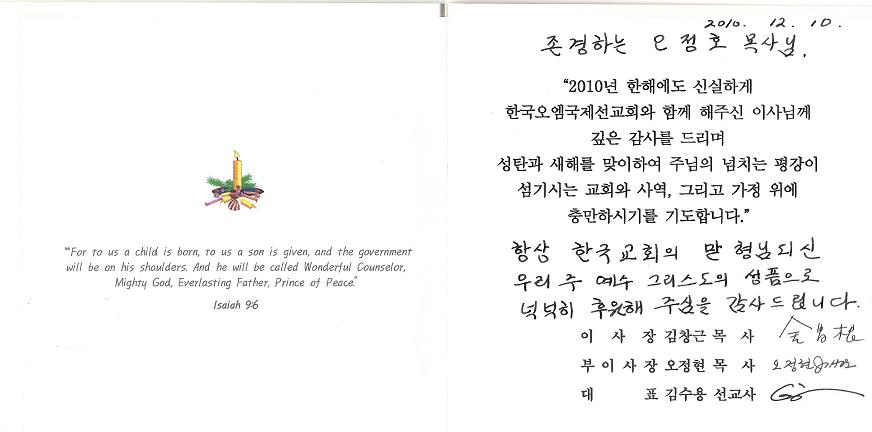 “For to us a child is born, to us a son is given, and the government
will be on his shoulders. And he will be called Wonderful Counselor,
Mighty God, Everlasting Father, Prince of Peace.”
Isaiah 9:6
2010. 12. 10.
존경하는 오정호 목사님.
“2010년 한해에도 신실하게
한국오엠국제선교회와 함께 해주신 이사님께
깊은 감사를 드리며
성탄과 새해를 맞이하여 주님의 넘치는 평강이
섬기시는 교회와 사역, 그리고 가정 위에
충만하시기를 기도합니다.”
항상 한국교회의 맏형님되신
우리 주 예수 그리스도의 성품으로
넉넉히 후원해 주심을 감사드립니다.
이 사 장 김창근 목 사
부 이 사 장 오정현 목 사 오정현
대 표 김수용 선교사